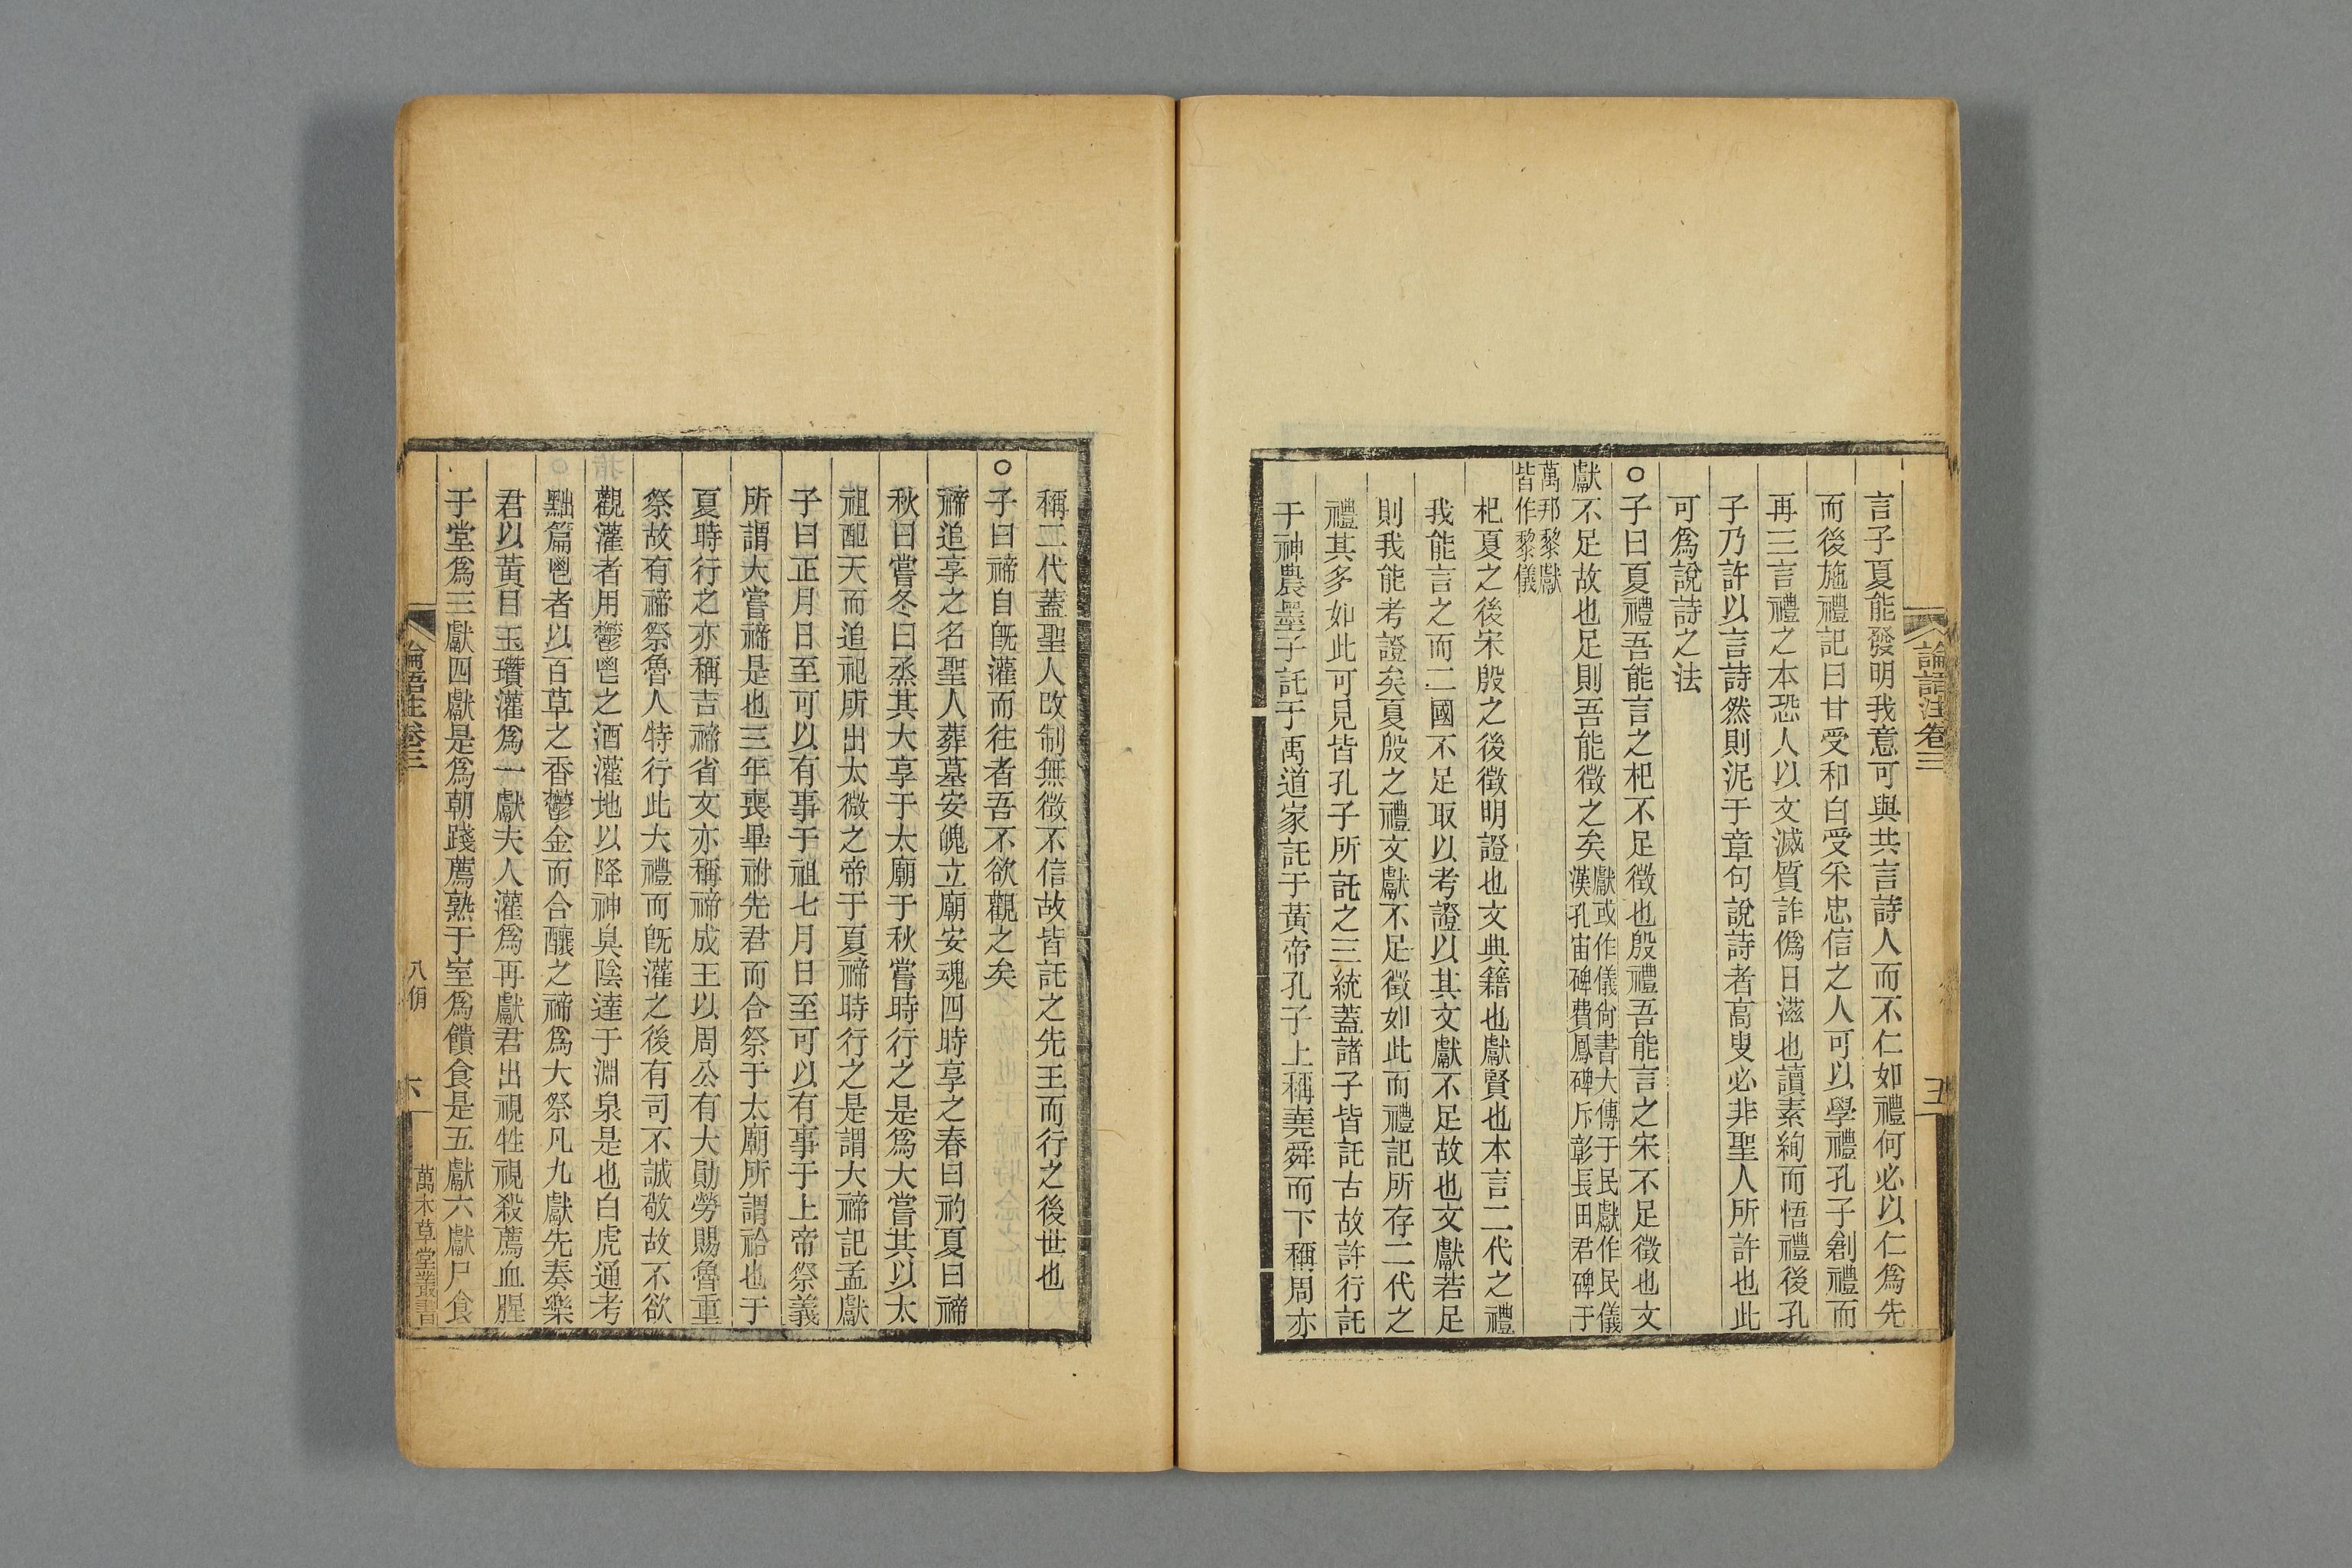 論語注卷三
五
言子夏能發明我意可與共言詩人而不仁如禮何必以仁爲先
而後施禮記曰甘受和白受采忠信之人可以學禮孔子創禮而
再三言禮之本恐人以文滅質詐僞日滋也讀素絢而悟禮後孔
子乃許以言詩然則泥于章句說詩者高叟必非聖人所許也此
可爲說詩之法
○子曰夏禮吾能言之杞不足徵也殷禮吾能言之宋不足徵也文
獻不足故也足則吾能徵之矣
獻或作儀尙書大傳于民獻作民儀
漢孔宙碑費鳳碑斥彰長田君碑于
萬邦黎獻
皆作黎儀
杞夏之後宋殷之後徵明證也文典籍也獻賢也本言二代之禮
我能言之而二國不足取以考證以其文獻不足故也文獻若足
則我能考證矣夏殷之禮文獻不足徵如此而禮記所存二代之
禮其多如此可見皆孔子所託之三統蓋諸子皆託古故許行託
于神農墨子託于禹道家託于黃帝孔子上稱堯舜而下稱周亦
稱二代蓋聖人改制無徵不信故皆託之先王而行之後世也
○子曰禘自旣灌而往者吾不欲觀之矣
禘追享之名聖人葬墓安魄立廟安魂四時享之春曰礿夏曰禘
秋曰嘗冬曰烝其大享于太廟于秋嘗時行之是爲大嘗其以太
祖配天而追祀所出太微之帝于夏禘時行之是謂大禘記孟獻
子曰正月日至可以有事于祖七月日至可以有事于上帝祭義
所謂大嘗禘是也三年喪畢祔先君而合祭于太廟所謂祫也于
夏時行之亦稱吉禘省文亦稱禘成王以周公有大勛勞賜魯重
祭故有禘祭魯人特行此大禮而旣灌之後有司不誠敬故不欲
觀灌者用鬱鬯之酒灌地以降神臭陰達于淵泉是也白虎通考
黜篇鬯者以百草之香鬱金而合釀之禘爲大祭凡九獻先奏樂
君以黃目玉瓚灌爲一獻夫人灌爲再獻君出視牲視殺薦血腥
于堂爲三獻四獻是爲朝踐薦熟于室爲饋食是五獻六獻尸食
論語注卷三
八佾
六
萬木草堂叢書